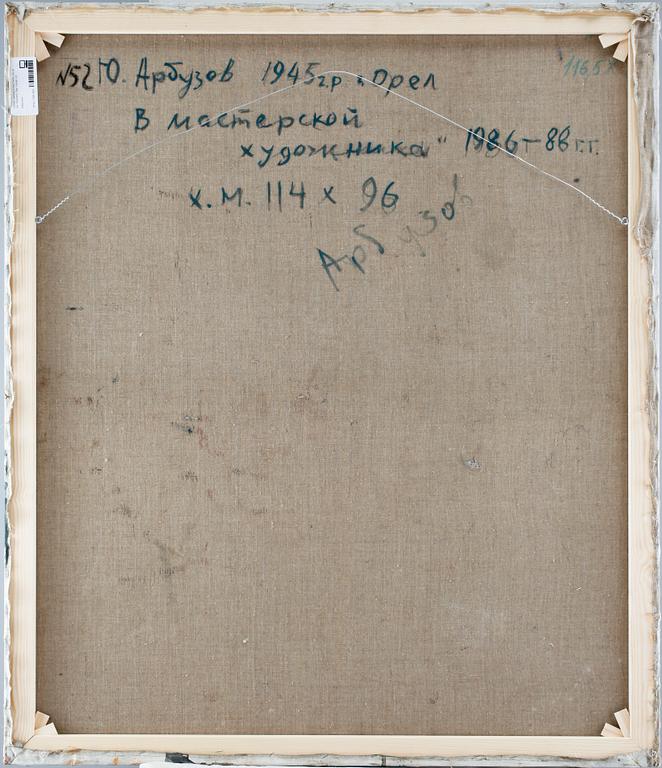 N52 Ю. Арбузов 1945г.р. „Орел
В мастерской
художника" 1986-88 г.г.
х.м. 114 х 96
Арбузов